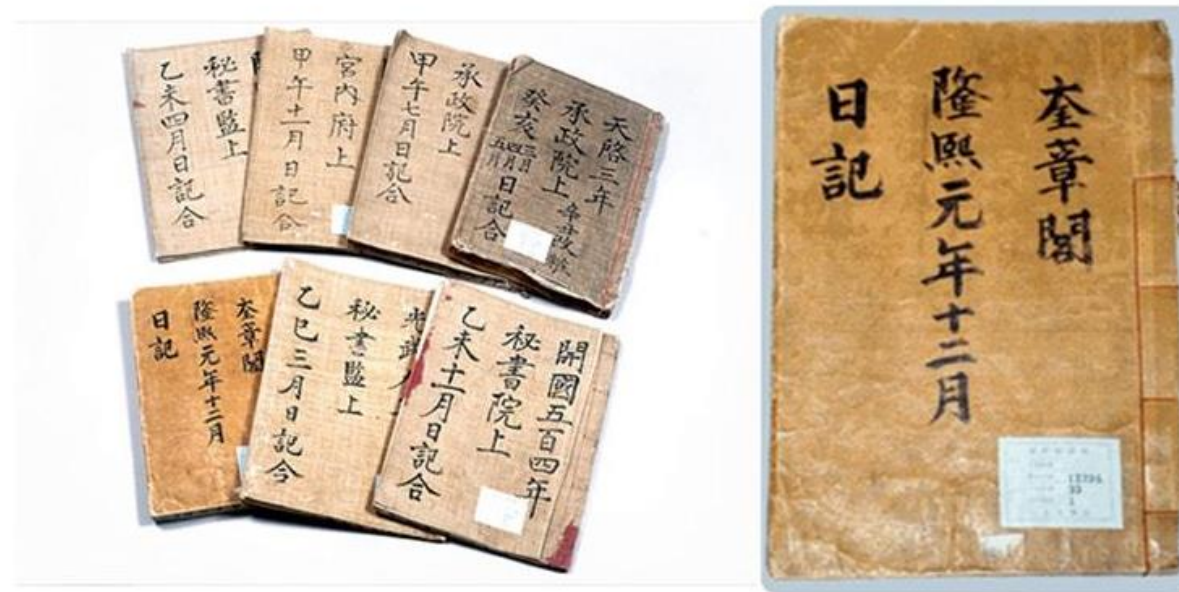 秘書監上
乙未四月日記合
宮內府上
甲午十一月日記合
承政院上
甲午七月日記合
天啓三年
承政院上
癸亥三月四月五月日記合
奎章閣
隆熙元年十二月
日記
光武
秘書監上
乙巳三月日記合
開國五百四年
秘書院上
乙未十一月日記合
奎章閣
隆熙元年十二月
日記